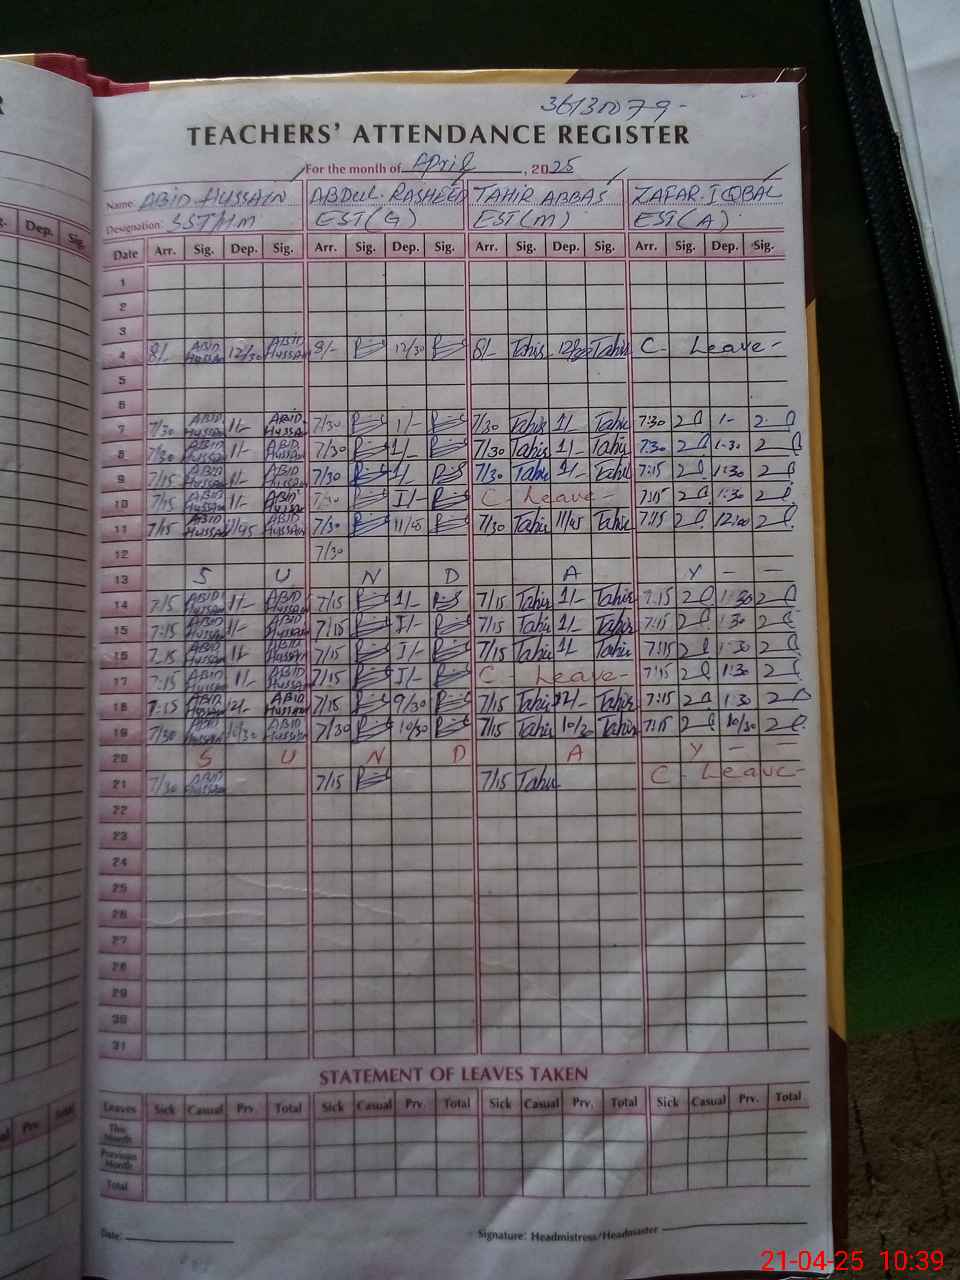 36130079-
TEACHERS' ATTENDANCE REGISTER
For the month of April, 2025
Name: ABID HUSSAIN ABDUL RASHEED TAHIR ABBAS ZAFAR IQBAL
Designation: SST/HM EST(G) EST(M) EST(A)
Date Arr. Sig. Dep. Sig. Arr. Sig. Dep. Sig. Arr. Sig. Dep. Sig. Arr. Sig. Dep. Sig.
1
2
3
4 8/- ABID HUSSAIN 12/30 ABID HUSSAIN 8/- 12/30 8/- Tahir 12/30 Tahir C - Leave -
5
6
7 7/30 ABID HUSSAIN 1/- ABID HUSSAIN 7/30 1/- 7/30 Tahir 1/- Tahir 7:30 1-
8 7/30 ABID HUSSAIN 1/- ABID HUSSAIN 7/30 1/- 7/30 Tahir 1/- Tahir 7:30 1-30
9 7/15 ABID HUSSAIN 1/- ABID HUSSAIN 7/30 1/- 7/30 Tahir 1/- Tahir 7:15 1:30
10 7/15 ABID HUSSAIN 1/- ABID HUSSAIN 7/30 1/- C - Leave - 7:15 1:30
11 7/15 ABID HUSSAIN 11/45 ABID HUSSAIN 7/30 11/45 7/30 Tahir 11/45 Tahir 7:15 12:00
12 7/30
13 S U N D A Y - -
14 7:15 ABID HUSSAIN 1/- ABID HUSSAIN 7/15 1/- 7/15 Tahir 1/- Tahir 7:15 1:30
15 7:15 ABID HUSSAIN 1/- ABID HUSSAIN 7/15 1/- 7/15 Tahir 1/- Tahir 7:15 1:30
16 7:15 ABID HUSSAIN 1/- ABID HUSSAIN 7/15 1/- 7/15 Tahir 1/- Tahir 7:15 1:30
17 7:15 ABID HUSSAIN 1/- ABID HUSSAIN 7/15 1/- C - Leave - 7:15 1:30
18 7:15 ABID HUSSAIN 12/- ABID HUSSAIN 7/15 9/30 7/15 Tahir 12/- Tahir 7:15 1:30
19 7/30 ABID HUSSAIN 10/30 ABID HUSSAIN 7/30 10/30 7/15 Tahir 10/30 Tahir 7:15 10/30
20 S U N D A Y - -
21 7/30 ABID HUSSAIN 7/15 7/15 Tahir C - Leave -
22
23
24
25
26
27
28
29
30
31
STATEMENT OF LEAVES TAKEN
Leaves Sick Casual Prv. Total Sick Casual Prv. Total Sick Casual Prv. Total Sick Casual Prv. Total
This Month
Previous Month
Total
Date: Signature: Headmistress/Headmaster
21-04-25 10:39